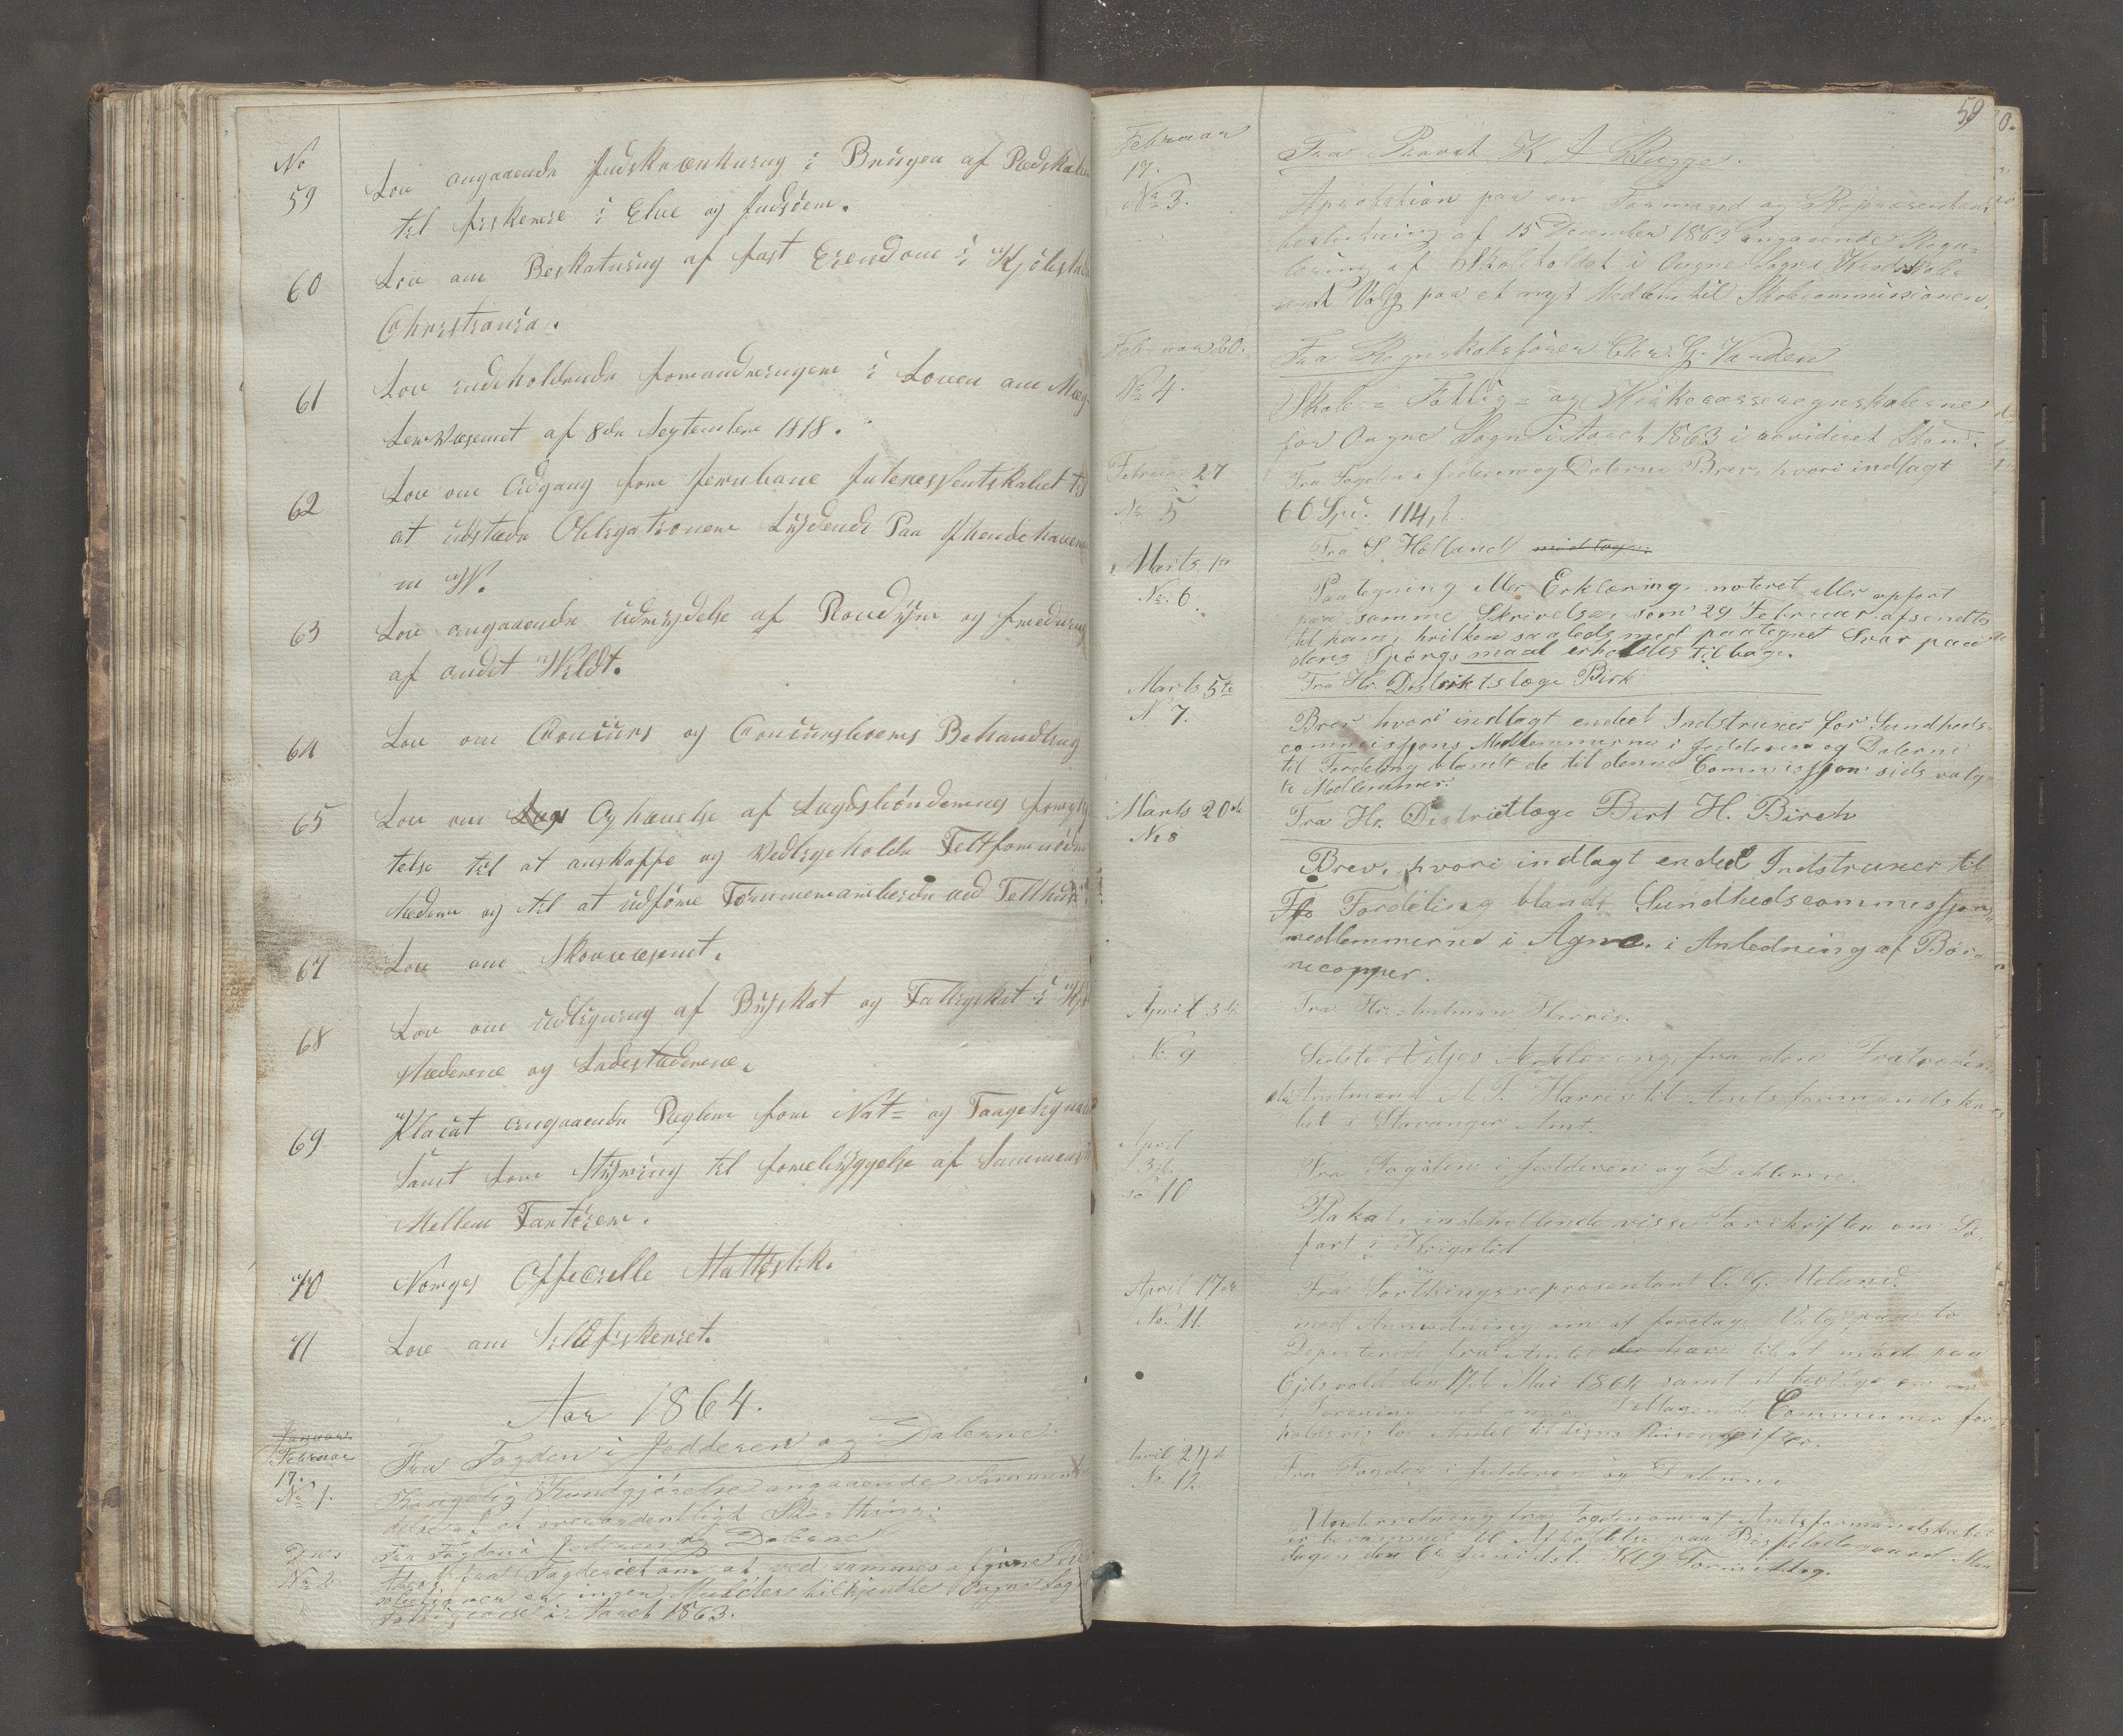 No
59 Lov angaaende Indskrænkning i Brugen af Redskaber
til fiskerie i Elve og Indsöer.
60 Lov om Beskatning af fast Eiendom i Kjöbstaden
Christiania.
61 Lov indeholdende forandringer i Loven om Mæg-
lervæsenet af 8de September 1818.
62 Lov om Adgang for Jernbane Interessentskabet til
at udstede Obligationer Lydende Paa Ihændehaveren
m W.
63 Lov angaaende Udrydelse af Rovdyr og fredning
af andet Wildt.
64 Lov om Concurs og Concursboers Behandling
65 Lov om Ophævelse af Lægdsböndernes forplig
telse til at anskaffe og Vedligeholde Teltfornöden
hederne og til at udföre Tömmermandarbeide ved Telthuse
67 Lov om Skovvæsenet.
68 Lov om udligning af Byskat og Fattigskat i Kjöb
stæderne og Ladestæderne.
69 Placat angaaende Regler for Nat= og Taagesignaler
Samt for Styring til forebyggelse af Sammenstöd
Mellem Fartöier.
70 Norges Officielle Stattistik.
71 Lov om Sildefiskeriet.
Aar 1864.
Januar
Februar
17. Fra Fogden i Jedderen og Dalerne
No 1. Kongelig Kundgjörelse angaaende Sammentræ
delse af et overordentligt Storthing.
Ds Fra Fogden i Jederen og Dalerne
No 2. fra Fogderiet om at ved sammes afgjorte Re
solutioner er ingen Mulcter tilkjendte Ougne Sogns
Fattigcasse i Aaret 1863.
59
Februar
17. Fra Provst K A Bugge.
No 3. Aprobation paa en Formand og Repræsentant
beslutning af 15 December 1863 angaaende Regu=
lering af Skoleholdet i Ougne Sogns
samt Valg paa et nyt Medlem til Skolecommissionen.
Februar 20. Fra Regnskabsförer Chr. G. Varden
No 4. Skole= Fattig= og Kirkecasseregnskaberne
for Ougne Sogn i Aaret 1863 i revideret Stand.
Februar 27 Fra Fogden i Jederen og Dalerne Brev, hvori indlagt
No 5 60 Spd. 114 s.
Marts 1te Fra S. Hölland modtages:
No. 6. Paategning eller Erklæring, noteret eller opfört
paa samme Skrivelse, som 29 Februar afsendtes
til ham, hvilken saaledes med paategnet Svar paa
dens Spörgsmaal erholdes tilbage.
Marts 5te Fra Hr. Distriktslæge Birk
N 7. Brev hvori indlagt endeel Indstruxer for Sundheds-
commissjons Medlemmerne i Jedderen og Dalerne
til Fordeling blandt de til denne Commissjon sids valg-
te Medlemmer.
Marts 20de Fra Hr. Districtlæge Birt H. Birch
No 8 Brev, hvori indlagt endeel Indstruxer til
Fo Fordeling blandt Sundhedscommissjons
medlemmerne i Agne. i Anledning af Bör-
necopper.
April 3de Fra Hr. Amtmand Harris.
No 9 Sidste Viljes Erklæring fra den Fratrædende
Amtmand A. S. Harris til Amtsformandska
bet i Stavanger Amt.
April
3de Fra Fogden i Jedderen og Dalerne.
No 10 Plakat, indeholdende visse Forskrifter om Sö-
fart i Krigstid
April 17de Fra Storthingsrepræsentant C. G. Ueland.
No. 11. med Anmodning om at foretage Valg paa to
Deputerede fra Amtet der have til at möde paa
Ejdsvold den 17de Mai 1864 samt at bevilge en
i Forening med andre Deltagende Communer for
holdsvis lov Andel til deres Reiseudgifter.
April 24de Fra Fogden i Jedderen og Dalerne
No. 12. Underretning fra Fogden om at Amtsformandskabet
er berammet til Afholdelse paa Bispeladegaard Man
dagen den 6te Juni d. A. Kl 9 Formiddag.